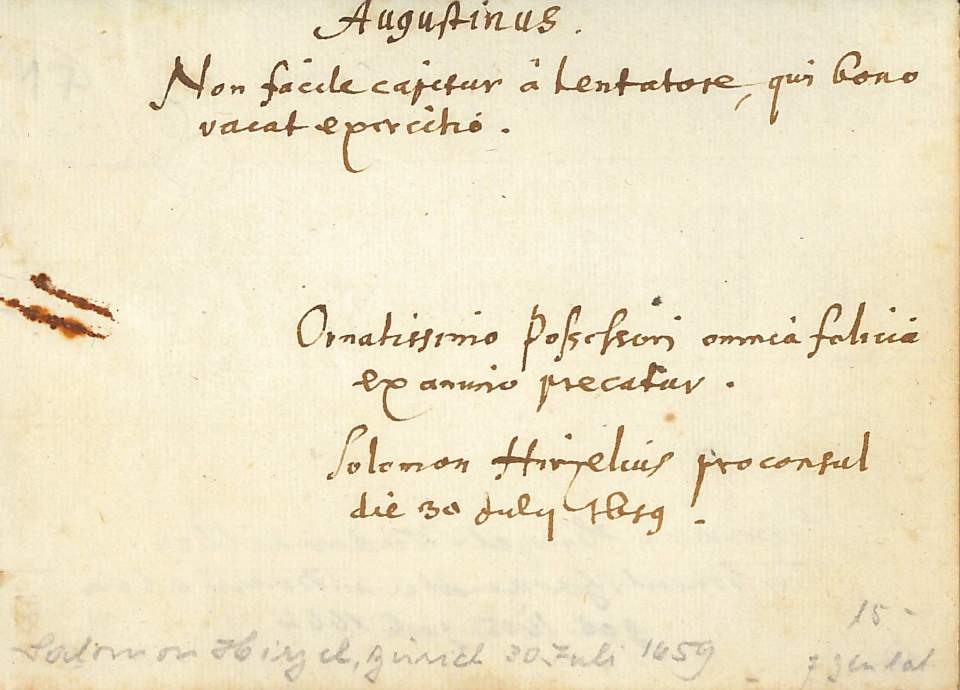 Augustinus.
Non facile capitur â tentatore, qui bono
vacat exercitió.
Ornatissimo Possessori omnia felicia
ex animo precatur.
Solomon Hirzelius proconsul
die 30 Julij 1659.
15-
Salomon Hirzel, Zürich 30 Juli 1659